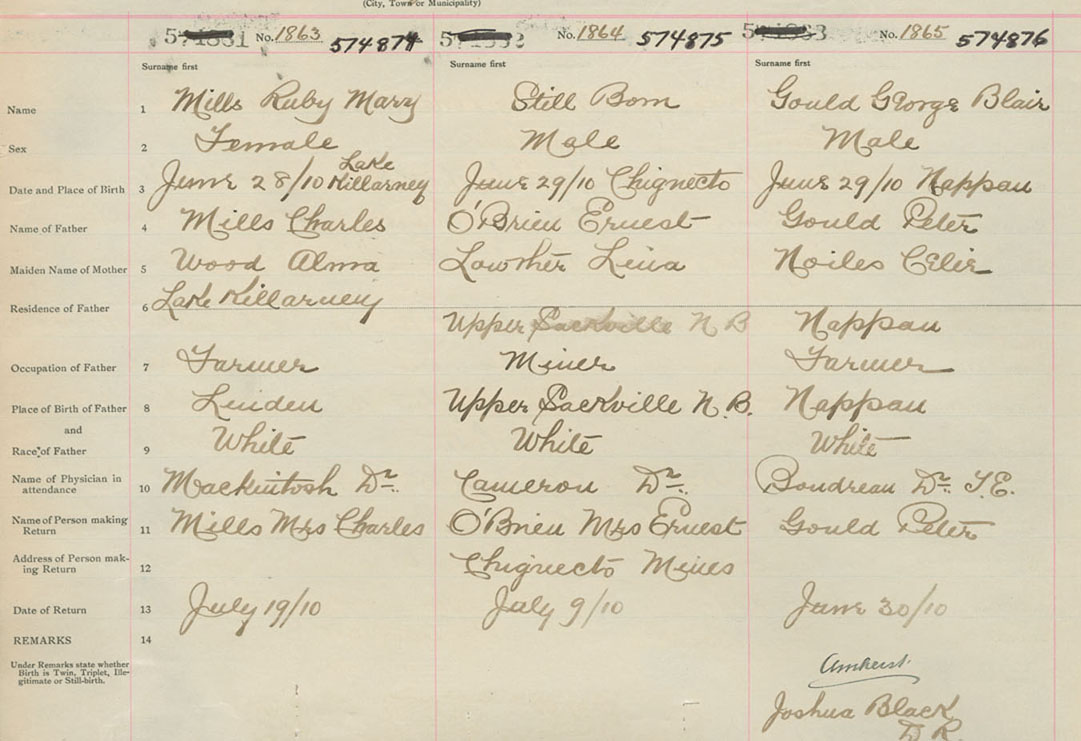 (City, Town or Municipality)
No. 1863 574874 No. 1864 574875 No. 1865 574876
Surname first Surname first Surname first
Name 1 Mills Ruby Mary Still Born Gould George Blair
Sex 2 Female Male Male
Lake
Date and Place of Birth 3 June 28/10 Killarney June 29/10 Chignecto June 29/10 Nappan
Name of Father 4 Mills Charles O'Brien Ernest Gould Peter
Maiden Name of Mother 5 Wood Alma Lowther Lena Noiles Celie
Residence of Father 6 Lake Killarney
Upper Sackville N B Nappan
Occupation of Father 7 Farmer Miner Farmer
Place of Birth of Father 8 Linden Upper Sackville N.B. Nappan
and
Race of Father 9 White White White
Name of Physician in
attendance 10 Mackintosh Dr. Cameron Dr. Boudreau Dr. T.E.
Name of Person making
Return 11 Mills Mrs Charles O'Brien Mrs Ernest Gould Peter
Address of Person mak-
ing Return 12 Chignecto Mines
Date of Return 13 July 19/10 July 9/10 June 30/10
REMARKS 14
Under Remarks state whether
Birth is Twin, Triplet, Ille-
gitimate or Still-birth.
Amherst.
Joshua Black
D.R.